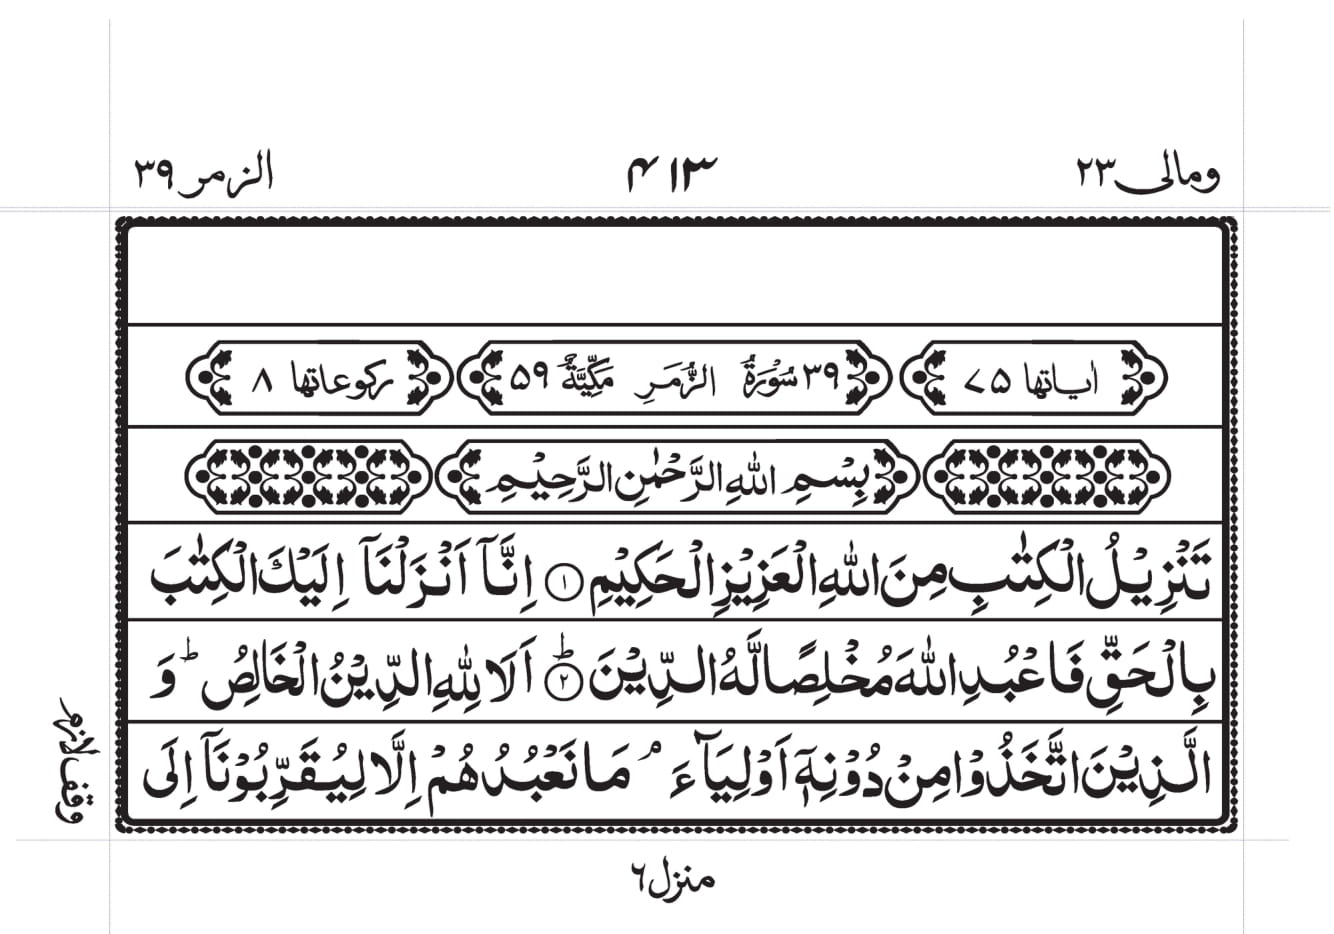 ومالی ۲۳ ۴۱۳ الزمر ۳۹
اٰیاتها ۷۵ ۳۹ سُوْرَةُ الزُّمَرِ مَكِّیَّةٌ ۵۹ ركوعاتها ۸
بِسْمِ اللهِ الرَّحْمٰنِ الرَّحِیْمِ
تَنْزِیْلُ الْكِتٰبِ مِنَ اللهِ الْعَزِیْزِ الْحَكِیْمِ ۱ اِنَّاۤ اَنْزَلْنَاۤ اِلَیْكَ الْكِتٰبَ
بِالْحَقِّ فَاعْبُدِ اللهَ مُخْلِصًا لَّهُ الدِّیْنَ ؕ ۲ اَلَا لِلهِ الدِّیْنُ الْخَالِصُ ؕ وَ
الَّذِیْنَ اتَّخَذُوْا مِنْ دُوْنِهٖۤ اَوْلِیَآءَ ۘ مَا نَعْبُدُهُمْ اِلَّا لِیُقَرِّبُوْنَاۤ اِلَی
وقف لازم
منزل ۶